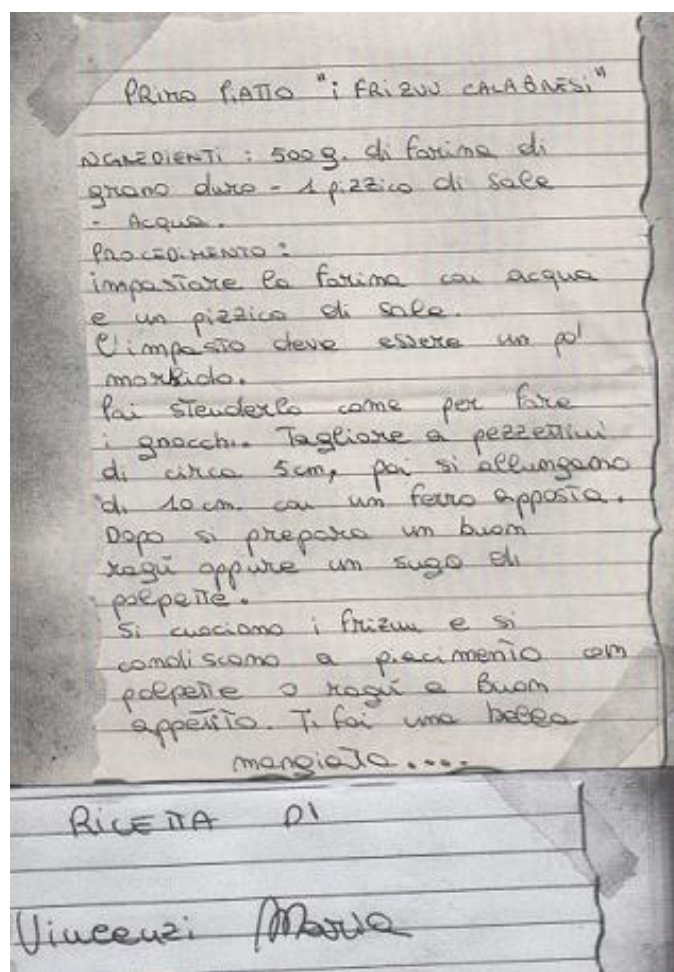 PRIMO PIATTO "i FRIZUU CALABRESI"
NGREDIENTI : 500 g. di farina di
grano duro - 1 pizzico di sale
- Acqua.
PROCEDIMENTO :
impastare la farina con acqua
e un pizzico di sale.
L'impasto deve essere un po'
morbido.
Poi stenderlo come per fare
i gnocchi. Tagliare a pezzettini
di circa 5cm, poi si allungano
di 10 cm. con un ferro apposta.
Dopo si prepara un buon
ragù oppure un sugo di
polpette.
Si cuociono i frizuu e si
condiscono a piacimento con
polpette o ragù e Buon
appetito. Ti fai una bella
mangiata....
RICETTA DI
Vincenzi Maria